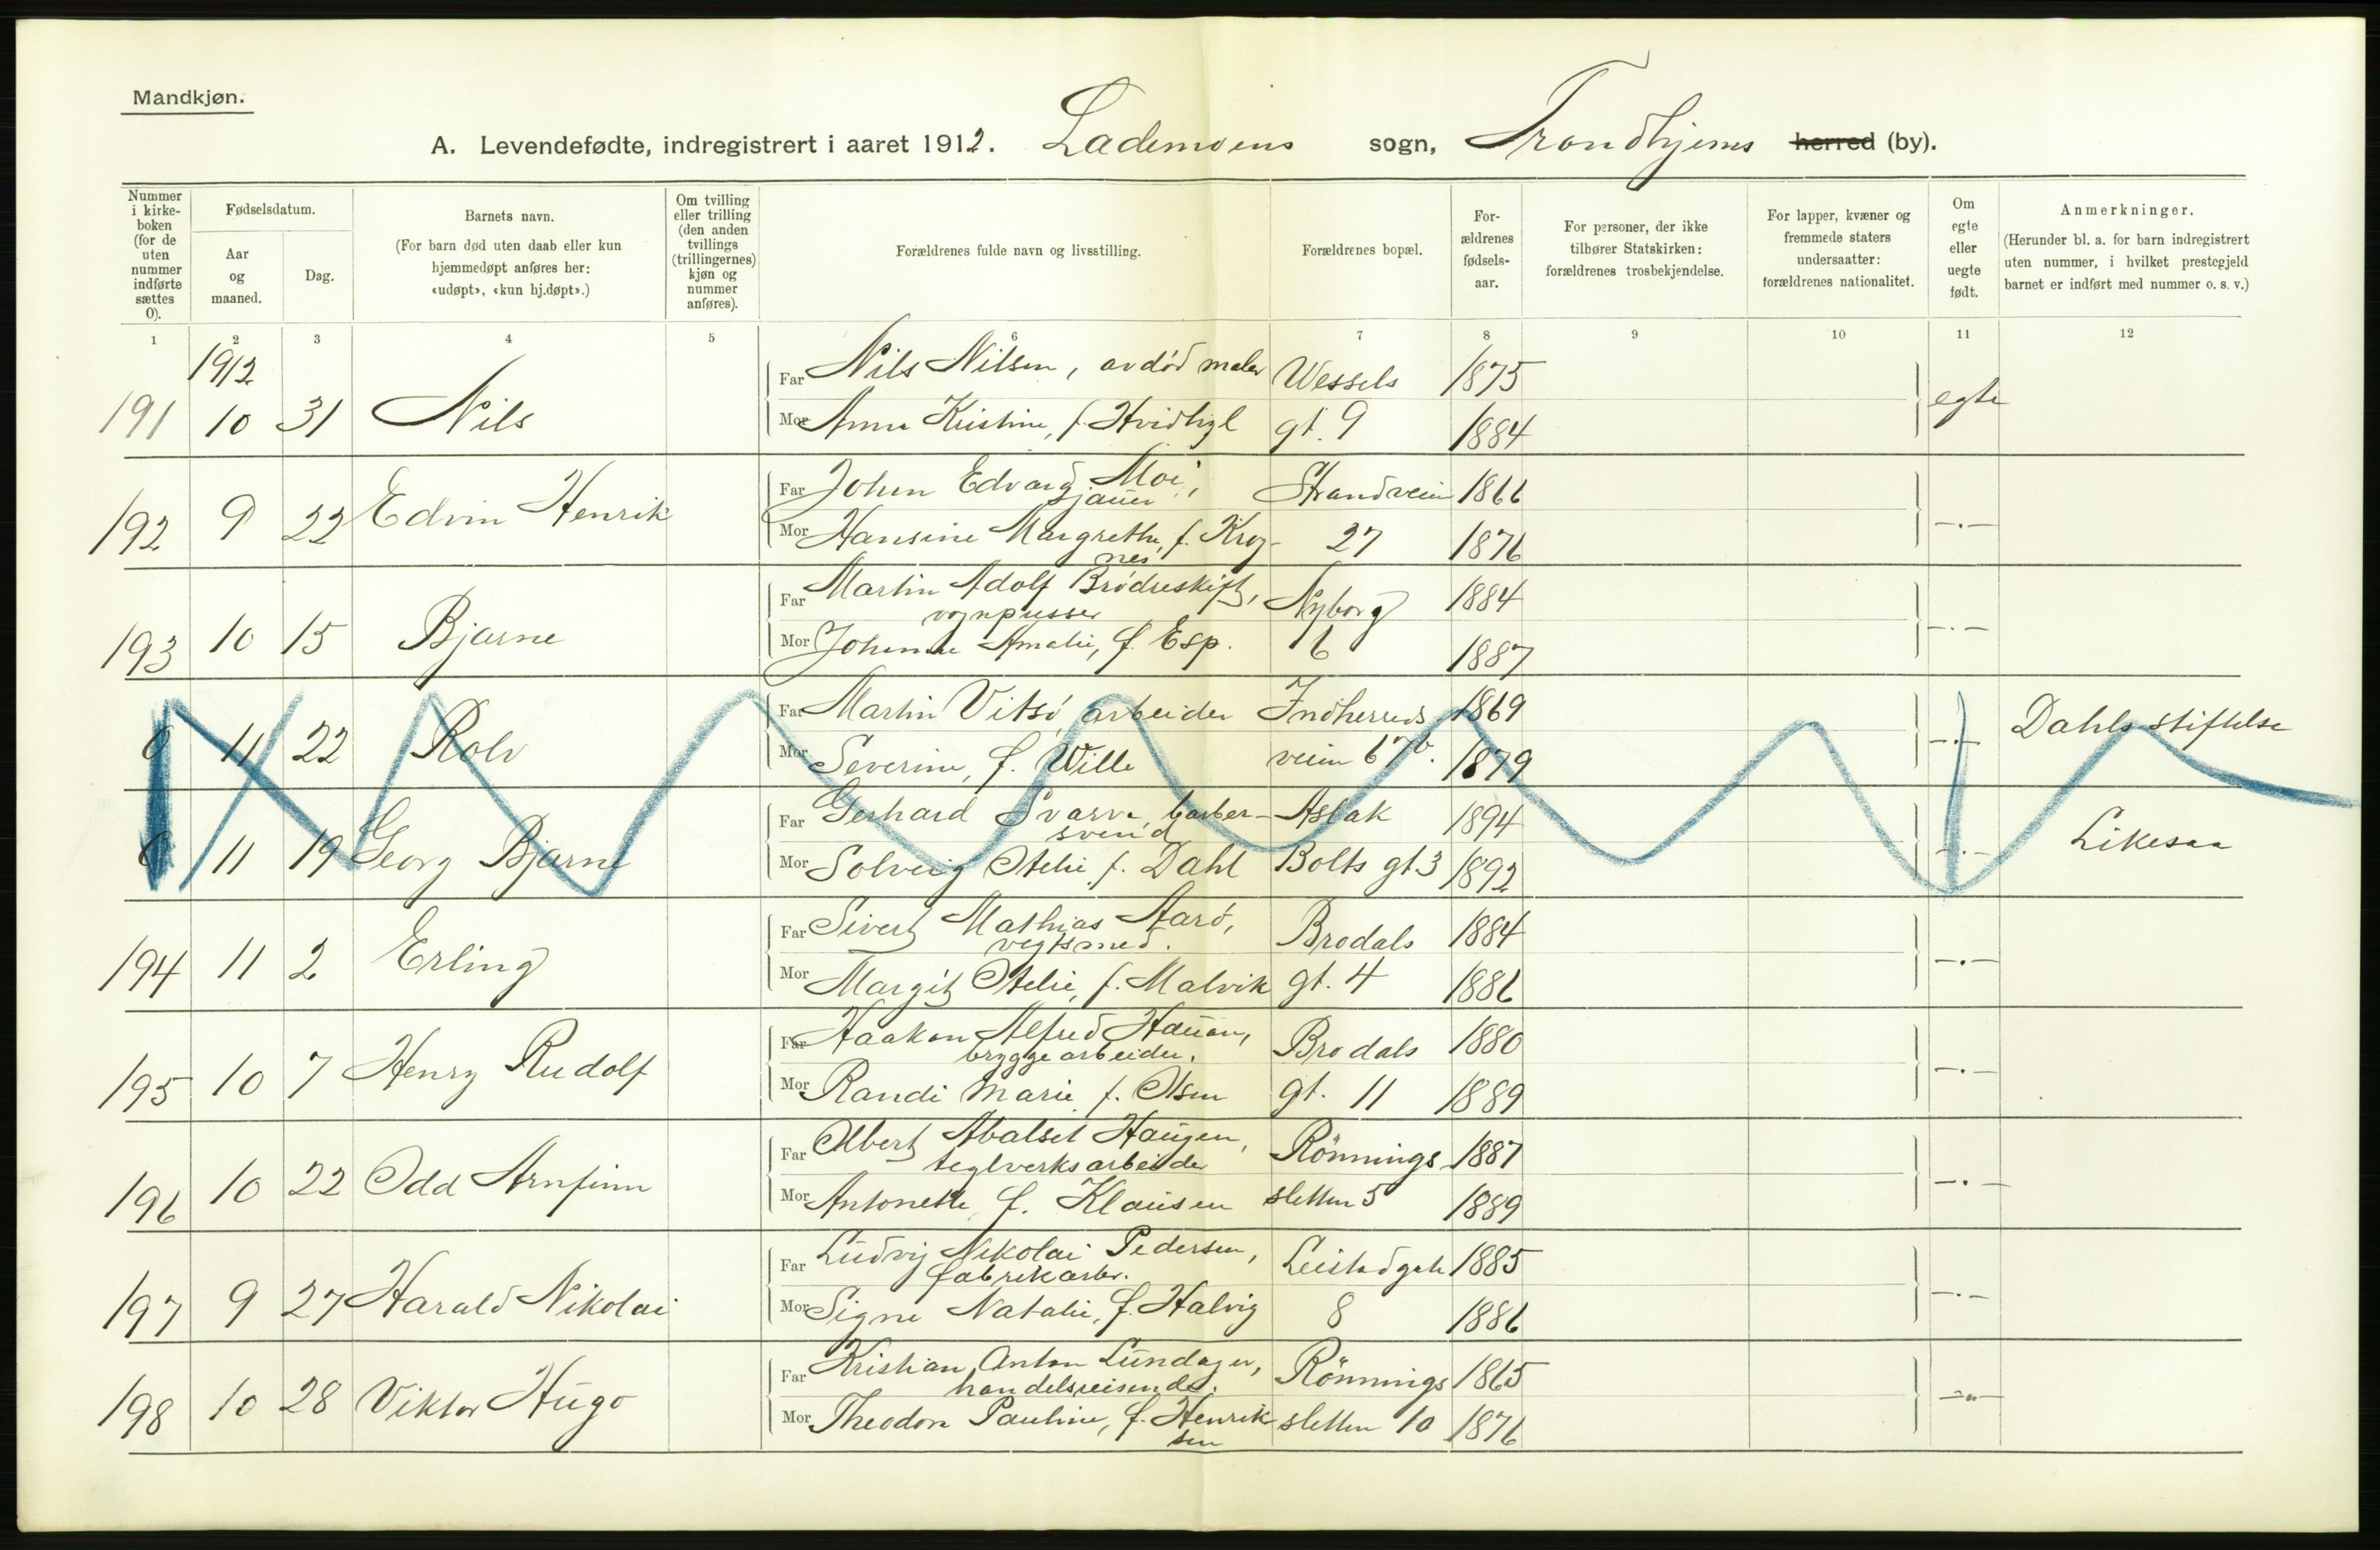 Mandkjøn.
A. Levendefødte, indregistrert i aaret 1912. Lademoens sogn, Trondhjems herred (by).
Nummer i kirke-boken (for de uten nummer indførte sættes 0).
Fødselsdatum.
Aar og maaned.
Dag.
Barnets navn.
(For barn død uten daab eller kun hjemmedøpt anføres her: «udøpt», «kun hj.døpt».)
Om tvilling eller trilling (den anden tvillings (trillingernes) kjøn og nummer anføres).
Forældrenes fulde navn og livsstilling.
Forældrenes bopæl.
For-ældrenes fødsels-aar.
For personer, der ikke tilhører Statskirken: forældrenes trosbekjendelse.
For lapper, kvæner og fremmede staters undersaatter: forældrenes nationalitet.
Om egte eller uegte født.
Anmerkninger.
(Herunder bl. a. for barn indregistrert uten nummer, i hvilket prestegjeld barnet er indført med nummer o. s. v.)
1 2 3 4 5 6 7 8 9 10 11 12
1912
Far Nils Nilsen, avdød maler Wessels 1875
191 10 31 Nils egte
Mor Anna Kristine, f. Hvidbygl gt. 9 1884
Far Johan Edvard Moi, Strandveien 1866
sjauer
192 9 22 Edvin Henrik —.—
Mor Hansine Margrethe, f. Krog- 27 1876
nes
Far Martin Adolf Brødreskift, Nyborg 1884
vognpusser
193 10 15 Bjarne —.—
Mor Johanne Amalie, f. Esp. 6 1887
Far Martin Vitsø, arbeider Indherreds 1869
0 11 22 Rolv —.— Dahls stiftelse
Mor Severine, f. Wille veien 67b. 1879
Far Gerhard Svarva, barber- Aslak 1894
svend
0 11 19 Georg Bjarne —.— Likesaa
Mor Solveig Otelie f. Dahl Bolts gt 3 1892
Far Sivert Mathias Aarø, Brodals 1884
vegtsmed.
194 11 2 Erling —.—
Mor Margit Otelie, f. Malvik gt. 4 1886
Far Haakon Alfred Hauan, Brodals 1880
bryggearbeider.
195 10 7 Henry Rudolf —.—
Mor Randi Marie f. Olsen gt. 11 1889
Far Albert Abalset Haugen, Rönnings 1887
teglverksarbeider
196 10 22 Odd Arnfinn —.—
Mor Antonette, f. Klausen sletten 5 1889
Far Ludvig Nikolai Pedersen, Leistadgate 1885
fabrikarbr.
197 9 27 Harald Nikolai —.—
Mor Signe Natalie, f. Halvig 8 1886
Far Kristian Anton Lundager, Rönnings 1865
handelsreisende.
198 10 28 Viktor Hugo —"—
Mor Theodora Pauline, f. Henrik sletten 10 1876
sen